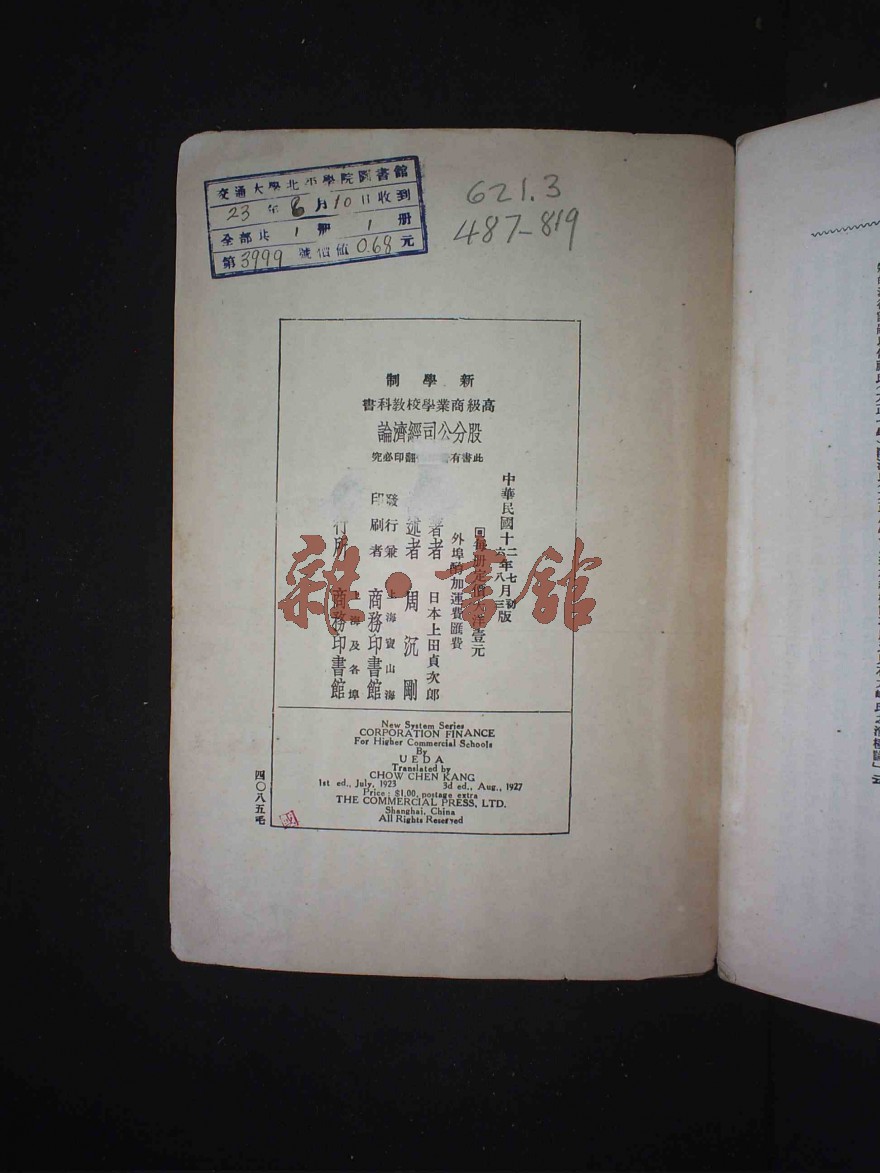 交通大學北平學院圖書館
23年6月10日收到
全部共1冊1冊
第3999號價值0.68元
621.3
487-819
新學制
高級商業學校教科書
股分公司經濟論
此書有翻印必究
中華民國十二年七月初版
六年八三
每册定價大洋壹元
外埠酌加運費匯費
著者 日本上田貞次郎
述者 周沉剛
發行兼印刷者 上海寶山海 商務印書館
行所 上海及各埠 商務印書館
雜·書館
New System Series
CORPORATION FINANCE
For Higher Commercial Schools
By
UEDA
Translated by
CHOW CHEN KANG
1st ed., July, 1923 3d ed., Aug., 1927
Price: $1.00, postage extra
THE COMMERCIAL PRESS, LTD.
Shanghai, China
All Rights Reserved
四〇八五毛